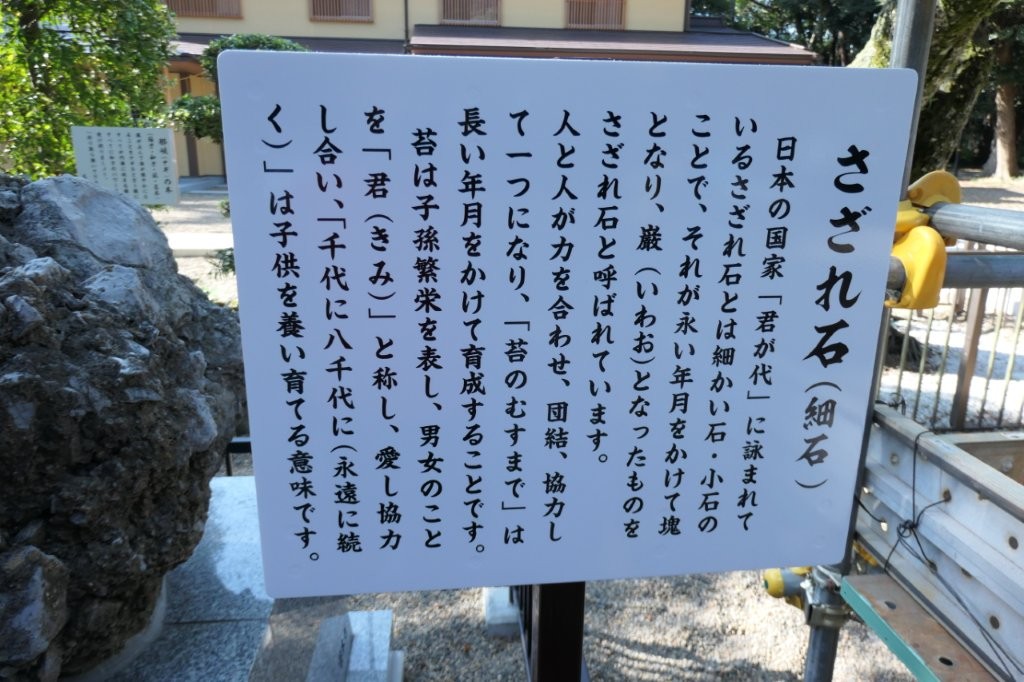 さざれ石（細石）
日本の国家「君が代」に詠まれて
いるさざれ石とは細かい石・小石の
ことで、それが永い年月をかけて塊
となり、巌（いわお）となったものを
さざれ石と呼ばれています。
人と人が力を合わせ、団結、協力し
て一つになり、「苔のむすまで」は
長い年月をかけて育成することです。
苔は子孫繁栄を表し、男女のこと
を「君（きみ）」と称し、愛し協力
し合い、「千代に八千代に（永遠に続
く）」は子供を養い育てる意味です。